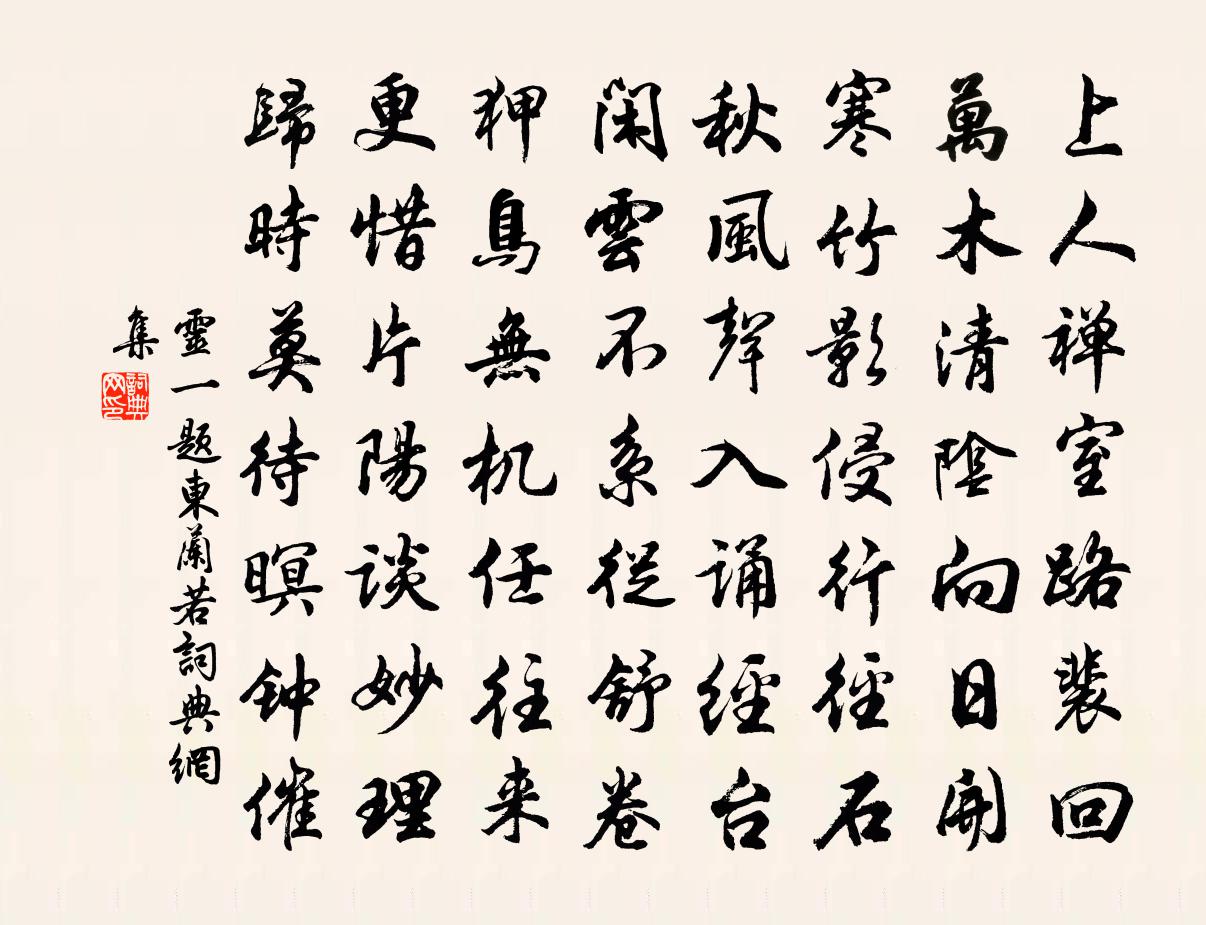 上人禅室路裴回
萬木清陰向日開
寒竹影侵行徑石
秋風聲入诵經台
閑雲不系從舒卷
狎鳥無机任往来
更惜片陽谈妙理
歸時莫待暝钟催
靈一題東蘭若詞典網
集
詞典网印